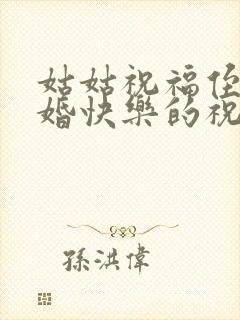 姑姑祝福侄
婚快樂的祝
孫洪偉